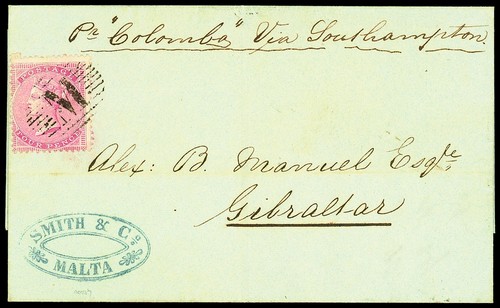 Pr "Colombo" Via Southampton.
POSTAGE
FOUR PENCE
Alex: B. Manuel Esqre
Gibraltar
SMITH & Co.
MALTA